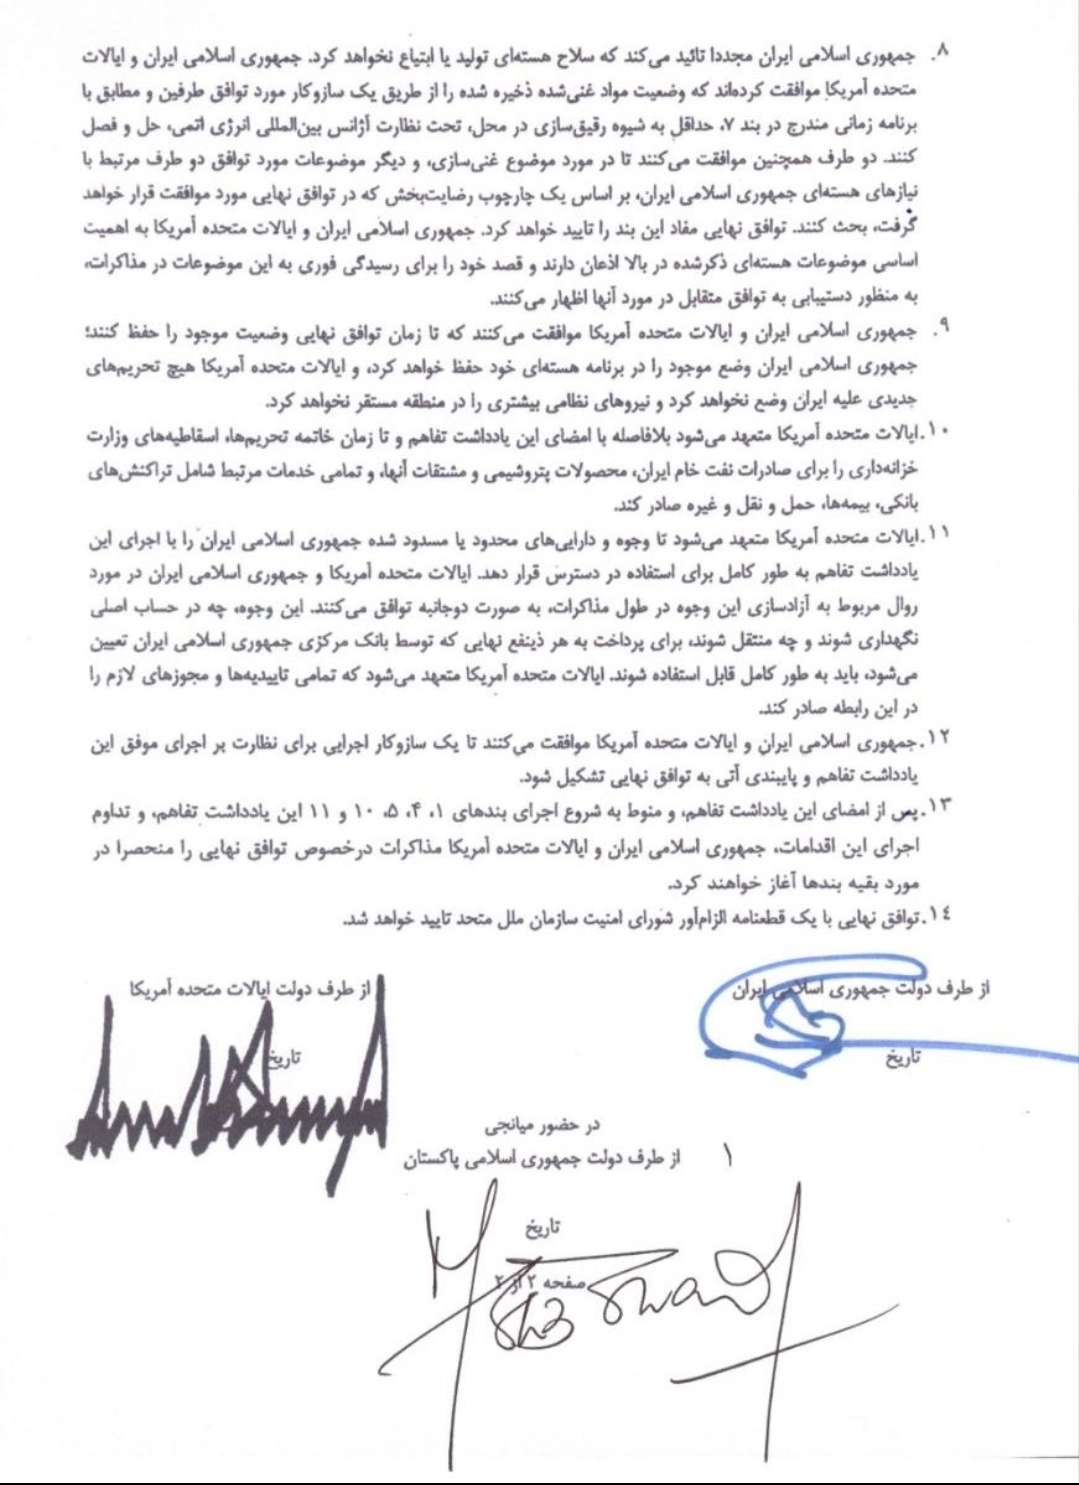 ۸. جمهوری اسلامی ایران مجددا تائید می‌کند که سلاح هسته‌ای تولید یا ابتیاع نخواهد کرد. جمهوری اسلامی ایران و ایالات
متحده آمریکا موافقت کرده‌اند که وضعیت مواد غنی‌شده ذخیره شده را از طریق یک سازوکار مورد توافق طرفین و مطابق با
برنامه زمانی مندرج در بند ۷، حداقل به شیوه رقیق‌سازی در محل، تحت نظارت آژانس بین‌المللی انرژی اتمی، حل و فصل
کنند. دو طرف همچنین موافقت می‌کنند تا در مورد موضوع غنی‌سازی، و دیگر موضوعات مورد توافق دو طرف مرتبط با
نیازهای هسته‌ای جمهوری اسلامی ایران، بر اساس یک چارچوب رضایت‌بخش که در توافق نهایی مورد موافقت قرار خواهد
گرفت، بحث کنند. توافق نهایی مفاد این بند را تایید خواهد کرد. جمهوری اسلامی ایران و ایالات متحده آمریکا به اهمیت
اساسی موضوعات هسته‌ای ذکرشده در بالا اذعان دارند و قصد خود را برای رسیدگی فوری به این موضوعات در مذاکرات،
به منظور دستیابی به توافق متقابل در مورد آنها اظهار می‌کنند.
۹. جمهوری اسلامی ایران و ایالات متحده آمریکا موافقت می‌کنند که تا زمان توافق نهایی وضعیت موجود را حفظ کنند؛
جمهوری اسلامی ایران وضع موجود را در برنامه هسته‌ای خود حفظ خواهد کرد، و ایالات متحده آمریکا هیچ تحریم‌های
جدیدی علیه ایران وضع نخواهد کرد و نیروهای نظامی بیشتری را در منطقه مستقر نخواهد کرد.
۱۰. ایالات متحده آمریکا متعهد می‌شود بلافاصله با امضای این یادداشت تفاهم و تا زمان خاتمه تحریم‌ها، اسقاطیه‌های وزارت
خزانه‌داری را برای صادرات نفت خام ایران، محصولات پتروشیمی و مشتقات آنها، و تمامی خدمات مرتبط شامل تراکنش‌های
بانکی، بیمه‌ها، حمل و نقل و غیره صادر کند.
۱۱. ایالات متحده آمریکا متعهد می‌شود تا وجوه و دارایی‌های محدود یا مسدود شده جمهوری اسلامی ایران را با اجرای این
یادداشت تفاهم به طور کامل برای استفاده در دسترس قرار دهد. ایالات متحده آمریکا و جمهوری اسلامی ایران در مورد
روال مربوط به آزادسازی این وجوه در طول مذاکرات، به صورت دوجانبه توافق می‌کنند. این وجوه، چه در حساب اصلی
نگهداری شوند و چه منتقل شوند، برای پرداخت به هر ذینفع نهایی که توسط بانک مرکزی جمهوری اسلامی ایران تعیین
می‌شود، باید به طور کامل قابل استفاده شوند. ایالات متحده آمریکا متعهد می‌شود که تمامی تاییدیه‌ها و مجوزهای لازم را
در این رابطه صادر کند.
۱۲. جمهوری اسلامی ایران و ایالات متحده آمریکا موافقت می‌کنند تا یک سازوکار اجرایی برای نظارت بر اجرای موفق این
یادداشت تفاهم و پایبندی آتی به توافق نهایی تشکیل شود.
۱۳. پس از امضای این یادداشت تفاهم، و منوط به شروع اجرای بندهای ۱، ۴، ۵، ۱۰ و ۱۱ این یادداشت تفاهم، و تداوم
اجرای این اقدامات، جمهوری اسلامی ایران و ایالات متحده آمریکا مذاکرات درخصوص توافق نهایی را منحصرا در
مورد بقیه بندها آغاز خواهند کرد.
۱٤. توافق نهایی با یک قطعنامه الزام‌آور شورای امنیت سازمان ملل متحد تایید خواهد شد.
از طرف دولت جمهوری اسلامی ایران
از طرف دولت ایالات متحده آمریکا
تاریخ
تاریخ
در حضور میانجی
از طرف دولت جمهوری اسلامی پاکستان
تاریخ
صفحه ۲ از ۲